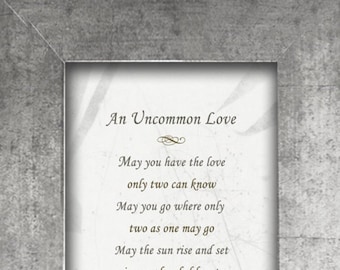 An Uncommon Love
May you have the love
only two can know
May you go where only
two as one may go
May the sun rise and set